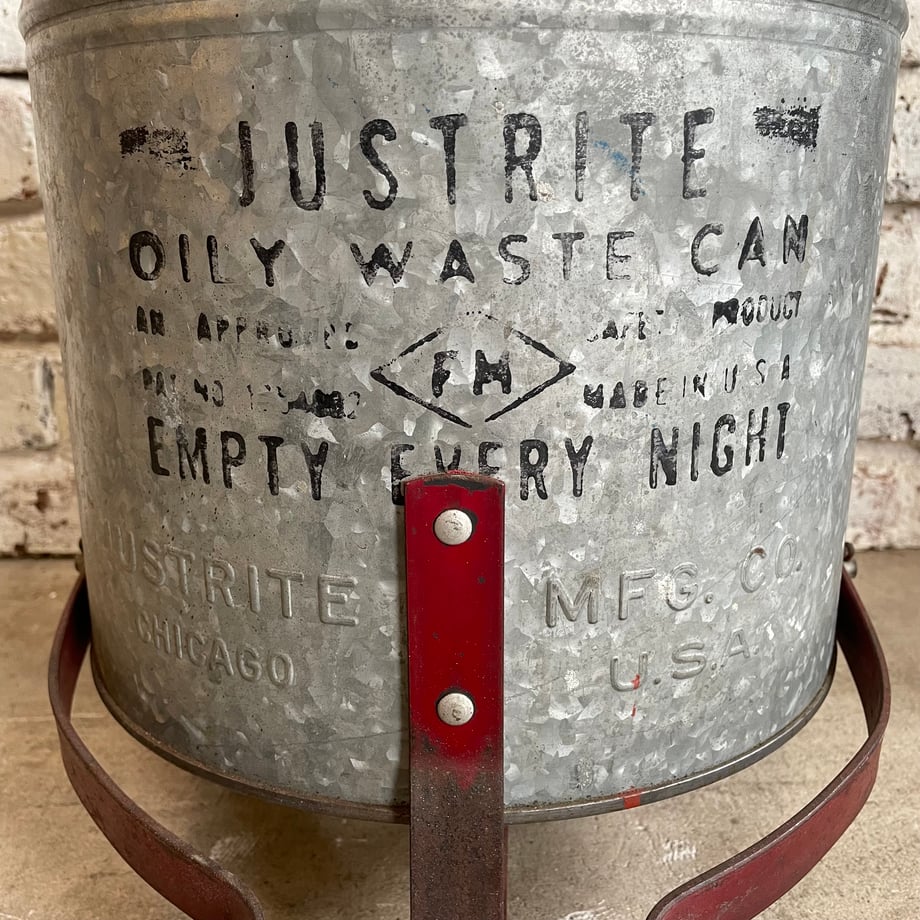 JUSTRITE
OILY WASTE CAN
AN APPROVED SAFETY PRODUCT
FM
PAT NO MADE IN U S A
EMPTY EVERY NIGHT
JUSTRITE MFG. CO.
CHICAGO U.S.A.